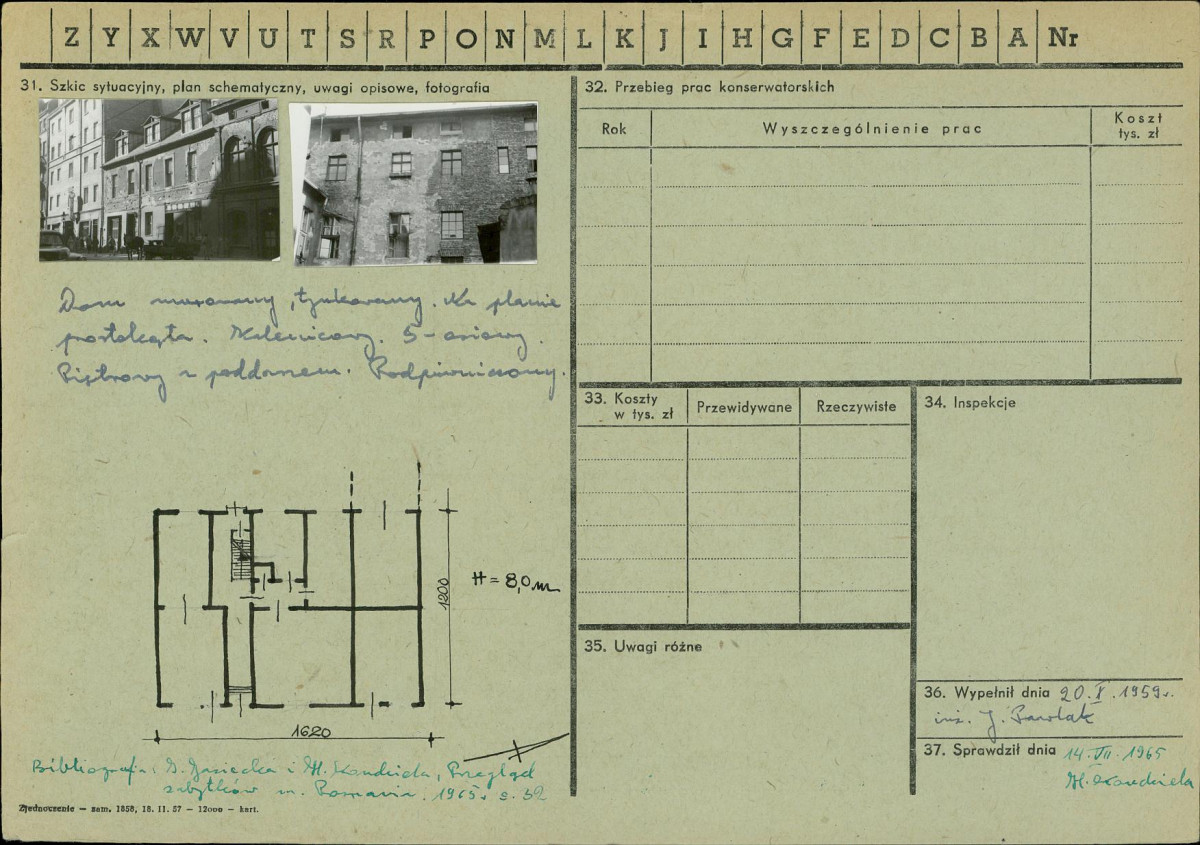 Z Y X W V U T S R P O N M L K J I H G F E D C B A Nr
31. Szkic sytuacyjny, plan schematyczny, uwagi opisowe, fotografia
Dom murowany, tynkowany. Na planie
prostokąta. Kalenicowy. 5-osiowy.
Piętrowy z poddaszem. Podpiwniczony.
H = 8,0 m
1200
1620
Bibliografia: G. i H. Kondziela, Przegląd
zabytków m. Poznania, 1965 r. s. 32
Zjednoczenie — zam. 1858, 18. II. 57 — 12000 — kart.
32. Przebieg prac konserwatorskich
Rok
Wyszczególnienie prac
Koszt
tys. zł
33. Koszty
w tys. zł
Przewidywane
Rzeczywiste
34. Inspekcje
35. Uwagi różne
36. Wypełnił dnia 20. X. 1959 r.
inż. J. Pawlak
37. Sprawdził dnia 14. VII. 1965
H. Kondziela